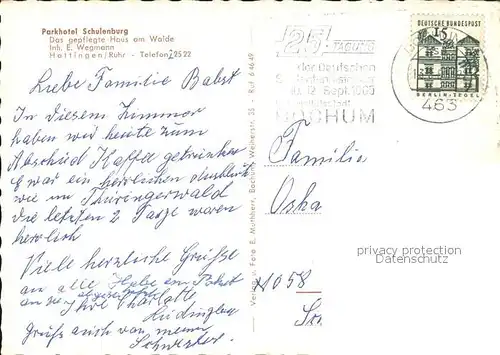 Parkhotel Schulenburg
Das gepflegte Haus am Walde
Inh. E. Wegmann
Hattingen/Ruhr - Telefon 22522
Liebe Familie Babst
In diesem Zimmer
haben wir heute zum
Abschied Kaffee getrunken
es war ein herrlichen Ausblick
wie im Thüringerwald
die letzten 2 Tage waren
herrlich
Viele herzliche Grüße
an alle Habe ein Paket
an sie abgeschickt
Ihre Charlotte
Grüße auch von meiner
Schwester.
Verlag u. Foto E. Muthherr, Bochum, Weiherstr. 35 - Ruf 64649
25. TAGUNG
der Deutschen
12. Sept. 1965
BOCHUM
463
DEUTSCHE BUNDESPOST
15
BERLIN-TEGEL
Familie
Oska
privacy protection
Datenschutz
X1058